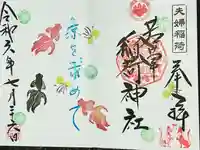 夫婦稲荷
奉拝
若宮
稲荷神社
涼を求めて
令和六年七月